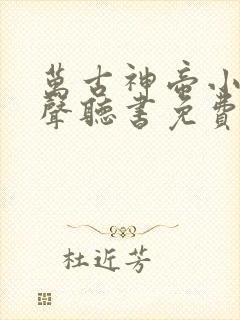 萬古神帝小
聲聽書免費
杜近芳